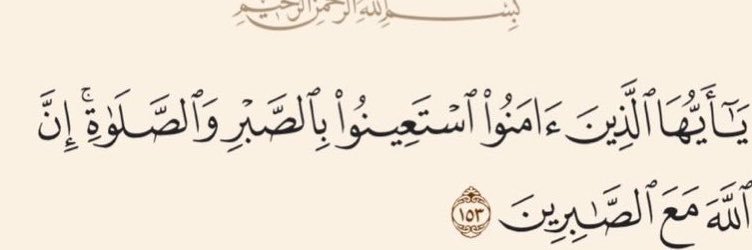 بِسْمِ ٱللَّهِ ٱلرَّحْمَٰنِ ٱلرَّحِيمِ
يَٰٓأَيُّهَا ٱلَّذِينَ ءَامَنُوا۟ ٱسْتَعِينُوا۟ بِٱلصَّبْرِ وَٱلصَّلَوٰةِ ۚ إِنَّ
ٱللَّهَ مَعَ ٱلصَّٰبِرِينَ ١٥٣